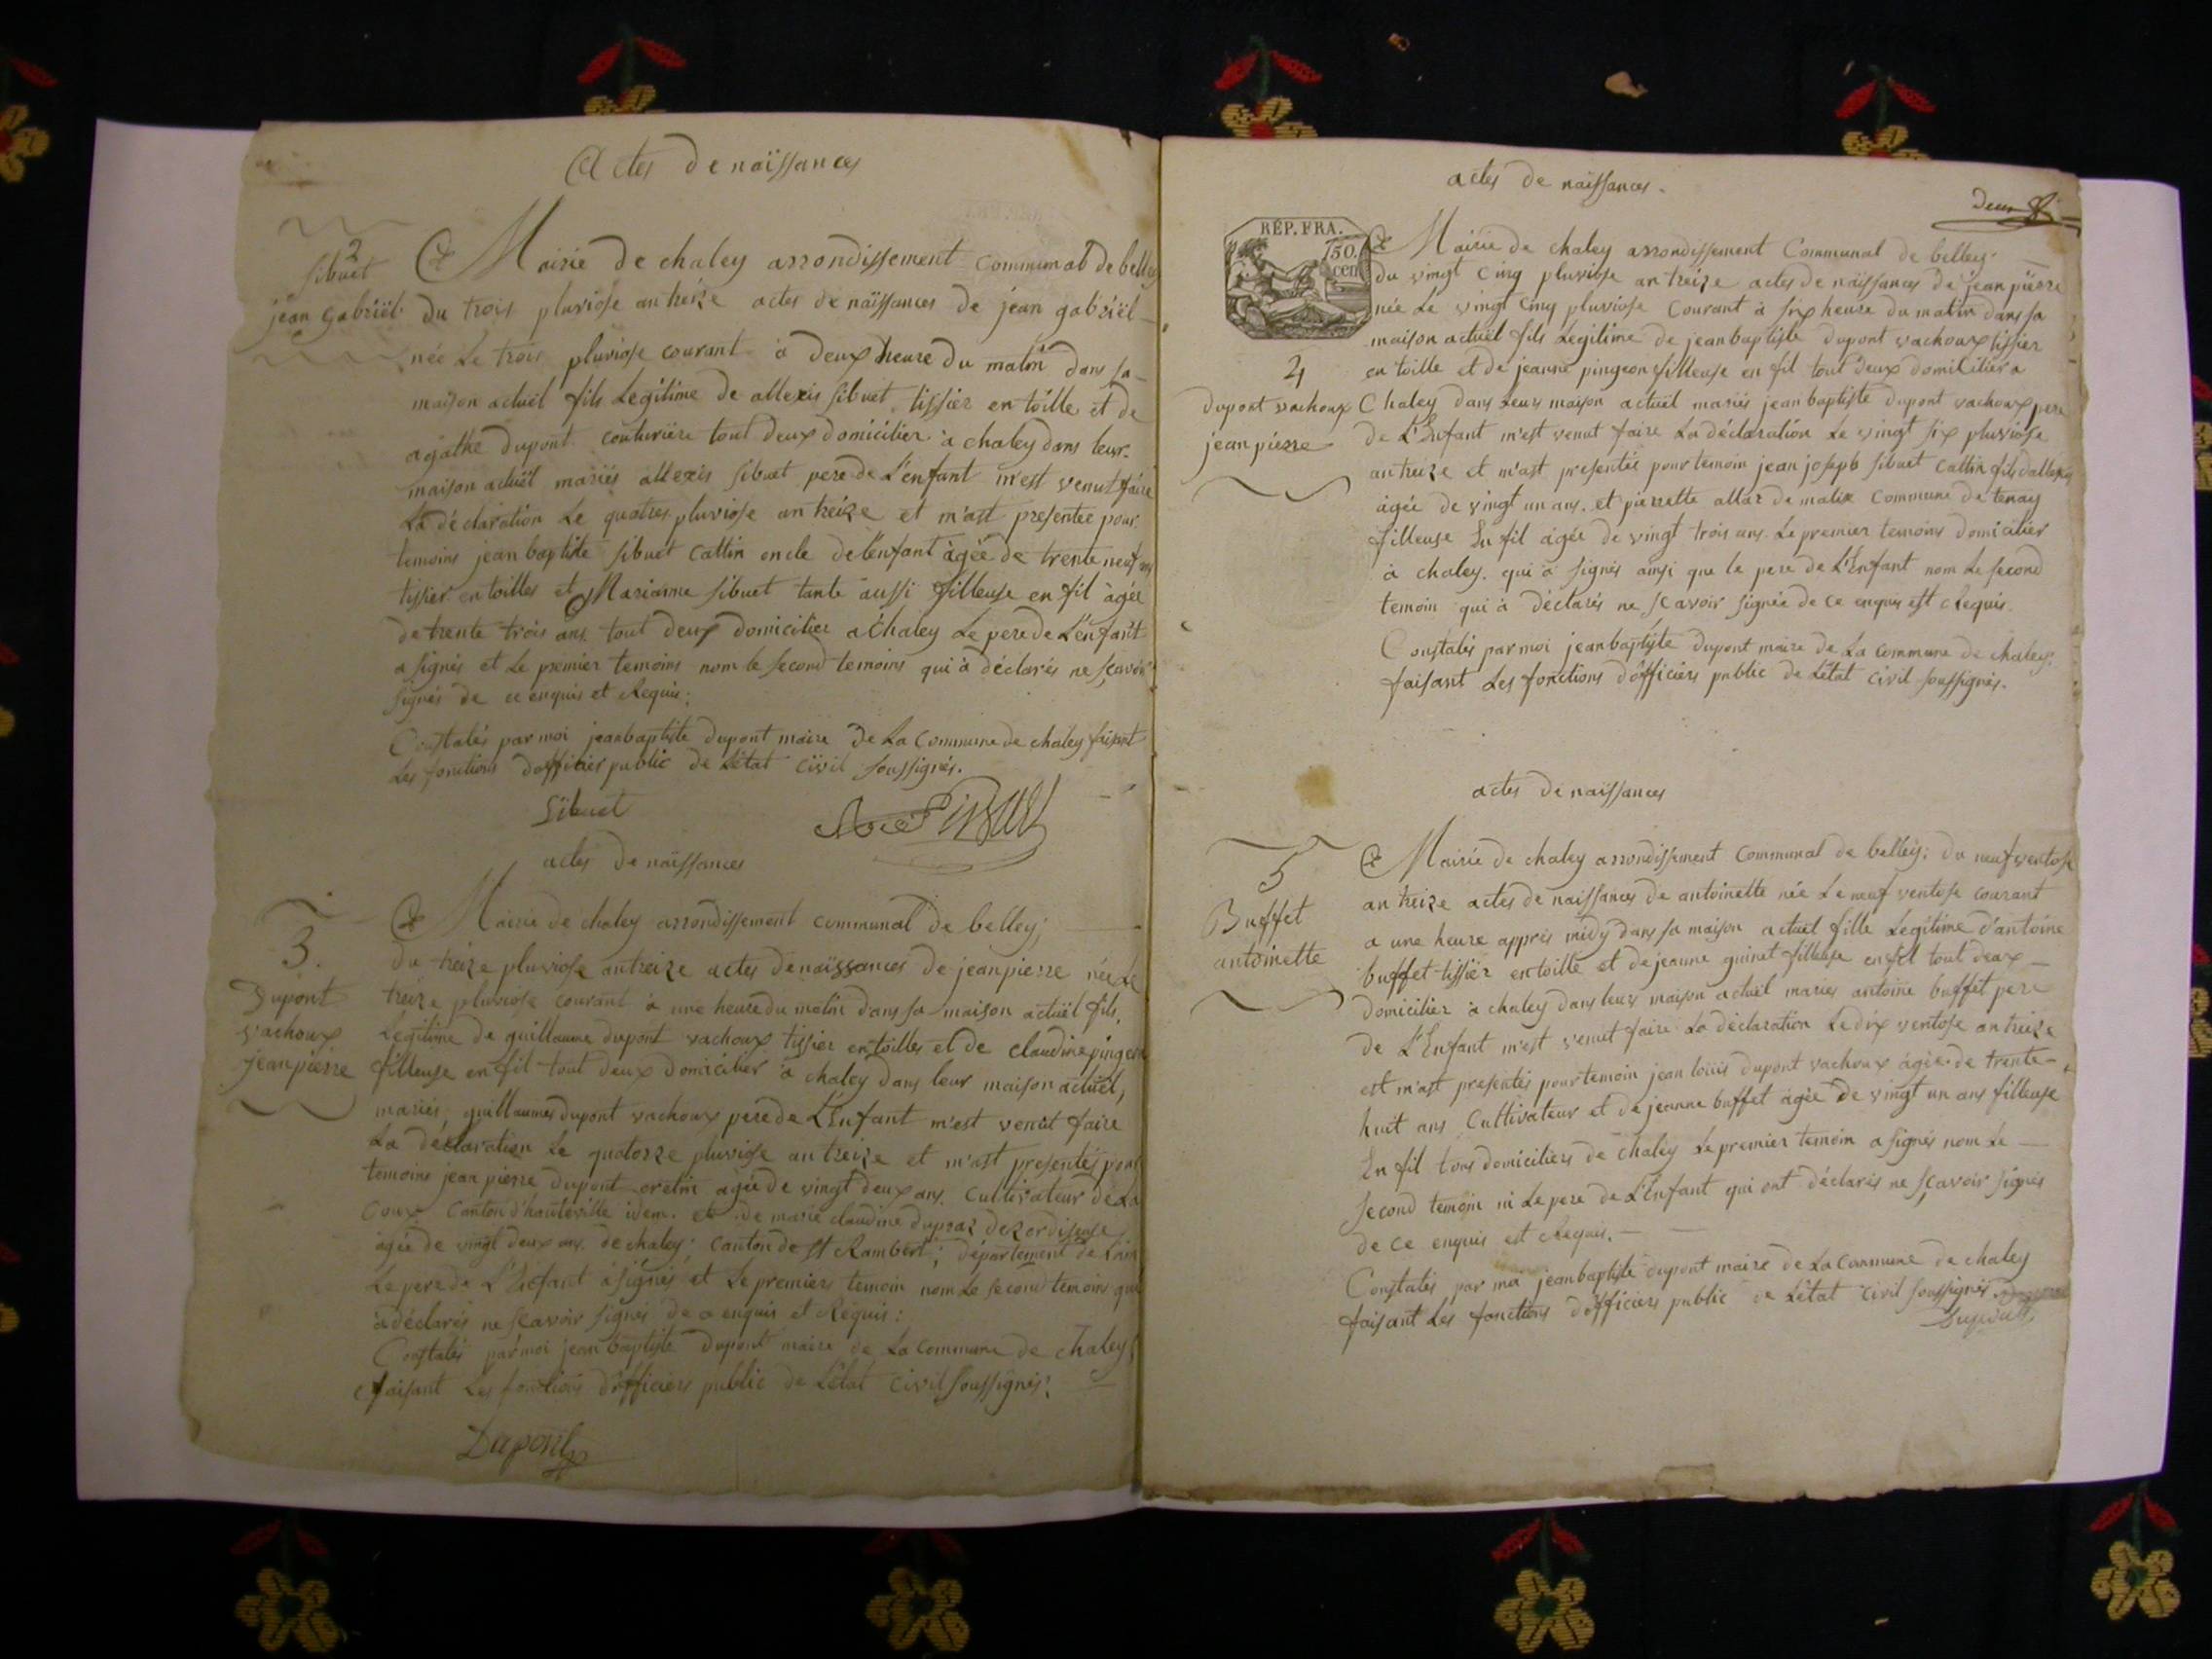 Actes de naïssances
2
sibuet
jean gabriël
Mairie de chaley arrondissement communal de belley
du trois pluviose an treize actes de naïssances de jean gabriël
née le trois pluviose courant à deux heure du matin dans sa
maison actuël fils Legitime de allexis sibuet tissier en toille et de
agathe dupont couturiere tout deux domicilier à chaley dans leur
maison actuël mariés allexis sibuet pere de L'enfant m'est venut faire
La déclaration Le quatres pluviose an treize et m'ast presentée pour
temoins jean baptiste sibuet Cattin oncle de L'enfant âgée de trente neuf ans
tissier en toilles et Marianne sibuet tante aussi filleuse en fil âgée
de trente trois ans tout deux domicilier a Chaley Le pere de L'enfant
a signés et Le premier temoins nom le second temoins qui à déclarés ne sçavoir
signés de ce enquis et Requis;
Constatés par moi jean baptiste dupont maire de La Commune de chaley faisant
Les fonctions dofficier public de L'état civil soussignés.
Sibuet
actes de naïssances
3.
Dupont
vachoux
jean pierre
Mairie de chaley arrondissement communal de belley;
du treize pluviose an treize actes de naïssances de jean pierre née Le
treize pluviose courant à une heure du matin dans sa maison actuël fils
Legitime de guillaume dupont vachoux tissier en toilles et de claudine pingeon
filleuse en fil tout deux domicilier à chaley dans leur maison actuël,
mariés guillaumes dupont vachoux pere de L'Enfant m'est venut faire
La déclaration Le quatorze pluviose an treize et m'ast presentés pour
temoins jean pierre dupont orelin agée de vingt deux ans Cultivateur de La
Coux Canton d'hauteville idem. et de marie claudine dupraz
agée de vingt deux ans de chaley; Canton de St Rambert; département de Lain
Le pere de L'Enfant à signés et Le premiers temoin nom Le second temoins qui
à déclarés ne sçavoir signés de ce enquis et Requis:
Constatés par moi jean baptiste dupont maire de La commune de chaley
faisant Les fonctions d'officiers public de L'état civil soussignés:
Dupont
actes de naïssances.
deux
RÉP. FRA.
50.
cen
4
dupont vachoux
jean pierre
Mairie de chaley arrondissement Communal de belley.
du vingt cinq pluviose an treize actes de naïssances de jean pierre
née Le vingt cinq pluviose Courant à six heure du matin dans sa
maison actuël fils Legitime de jean baptiste dupont vachoux tissier
en toille et de jeanne pingeon filleuse en fil tout deux domicilier a
Chaley dans Leurs maison actuël mariés jean baptiste dupont vachoux pere
de L'Enfant m'est venut faire La déclaration Le vingt six pluviose
an treize et m'ast presentée pour temoin jean joseph sibuet Cattin fils dallexis
âgée de vingt un ans. et pierrette allar de malix Commune de tenay
filleuse En fil âgée de vingt trois ans. Le premier temoins domicilier
à chaley. qui à signés ainsi que le pere de L'Enfant nom Le second
temoin qui à déclarés ne sçavoir signée de ce enquis est Requis.
Constatés par moi jean baptiste dupont maire de La commune de chaley.
faisant Les fonctions d'officiers public de L'état Civil soussignés.
actes de naissances
5
Buffet
antoinette
Mairie de chaley arrondissement Communal de belley; du neuf ventose
an treize actes de naissances de antoinette née Le neuf ventose courant
a une heure apprès midy dans sa maison actuël fille Legitime d'antoine
buffet tissier en toille et de jeanne guinet filleuse en fil tout deux
domicilier à chaley dans leurs maison actuël mariés antoine buffet pere
de L'Enfant m'est venut faire La déclaration Le dix ventose an treize
est m'ast presentés pour temoin jean louis dupont vachoux âgée de trente
huit ans Cultivateur et de jeanne buffet âgée de vingt un ans filleuse
En fil tous domiciliers de chaley Le premier temoin a signés nom Le
second temoin ni Le pere de L'Enfant qui ont déclarés ne sçavoir signés
de ce enquis est Requis.
Constatés par moi jean baptiste dupont maire de La Commune de chaley
faisant Les fonctions d'officiers public de L'état Civil soussignés
Dupont